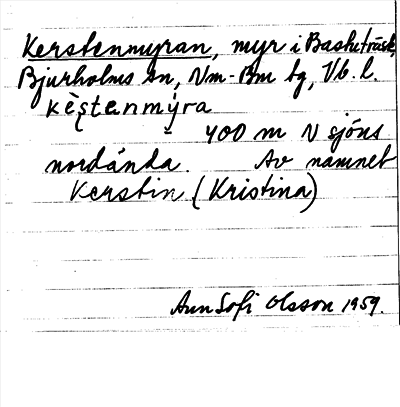 Kerstenmyran, myr i Baskseträsk,
Bjurholms sn, Nm-Bm tg, Vb. l.
kèstenmýra
400 m N sjöns
nordända. Av namnet
Kerstin (Kristina)
Ann Sofi Olsson 1959.